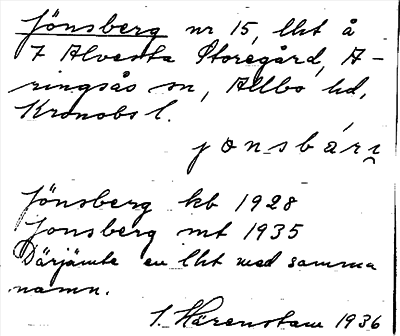 Jönsberg nr 15, lht å
7 Alvesta Storegård, A-
ringsås sn, Allbo hd,
Kronobs l.
jɔnsbárɪ̯
Jönsberg kb 1928
Jonsberg mt 1935
Därjämte en lht med samma
namn.
S. Härenstam 1936